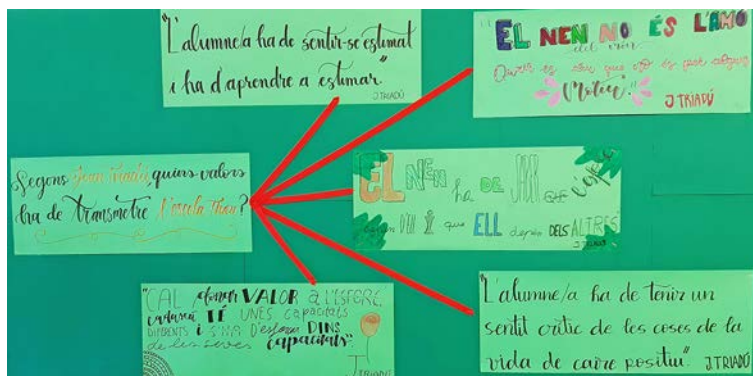 "L'alumne/a ha de sentir-se estimat
i ha d'aprendre a estimar"
J.TRIADÚ
"EL NEN NO ÉS L'AMO
del món.
es seu que no és per algun
Motiu."
J TRIADÚ
Segons Joan Triadú, quins valors
ha de transmetre l'escola Thau?
EL NEN ha DE
que ELL depèn DELS ALTRES"
J.TRIADÚ
"CAL donar VALOR a L'ESFORÇ
cadascú TÉ UNES capacitats
DIFERENTS i s'ha D'esforçar DINS
de les seves capacitats".
J TRIADÚ
"L'alumne/a ha de tenir un
sentit crític de les coses de la
vida de caire positiu". J.TRIADÚ